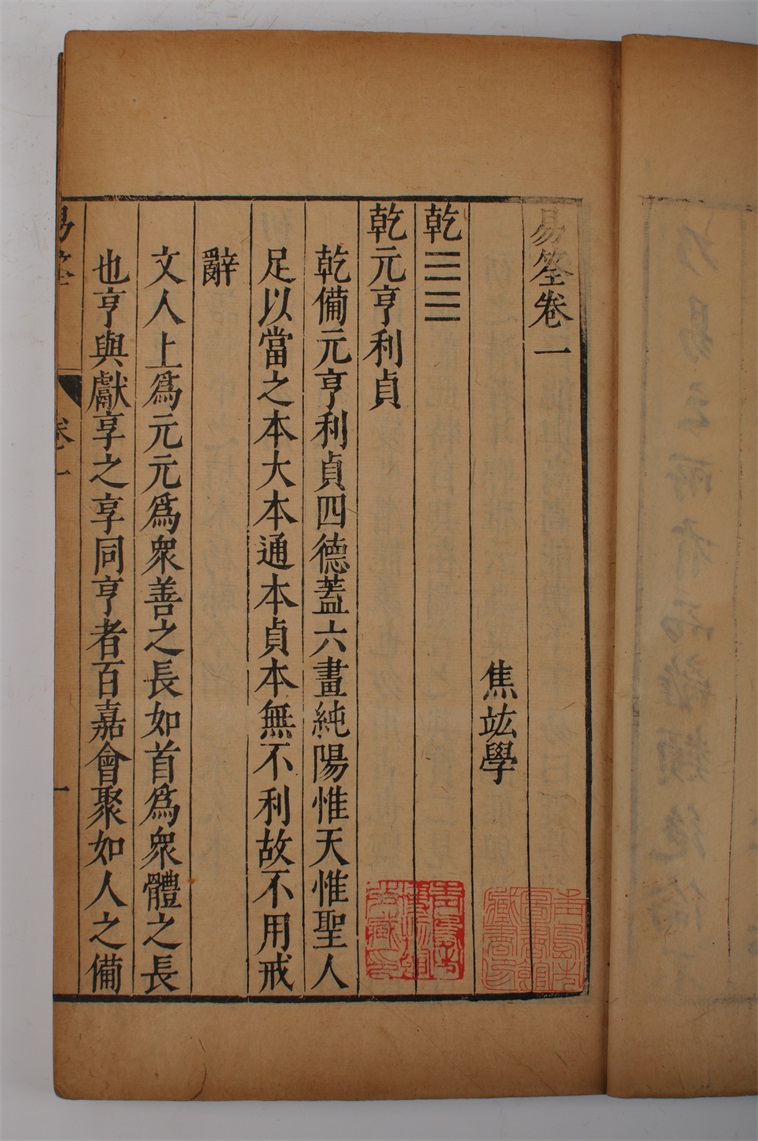 易筌卷一
焦竑學
乾䷀
乾元亨利貞
乾備元亨利貞四德蓋六畫純陽惟天惟聖人
足以當之本大本通本貞本無不利故不用戒
辭
文人上爲元元爲衆善之長如首爲衆體之長
也亨與獻享之享同亨者百嘉會聚如人之備
易筌 卷一 一